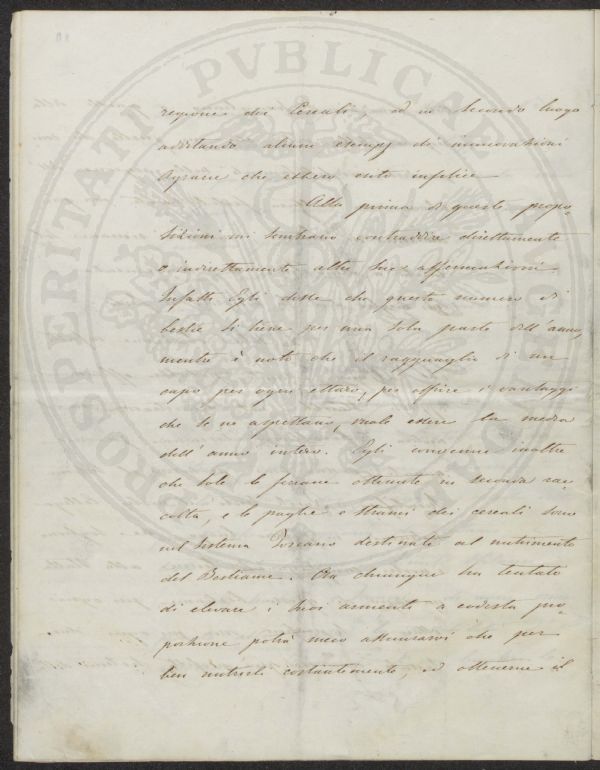 PROSPERITATI PVBLICAE AVGENDAE
regione dei Cereali, ed in secondo luogo
additando alcuni esempj di innovazioni
Agrarie che ebbero esito infelice
Alla prima di queste propo-
sizioni mi sembrano contraddire direttamente
o indirettamente altre sue affermazioni
Infatti Egli disse che questo numero di
bestie si tiene per una sola parte dell'anno,
mentre è noto che il ragguaglio di un
capo per ogni ettaro, per offrire i vantaggi
che se ne aspettano, vuole essere la media
dell'anno intero. Egli conviene inoltre
che sole le ottenute in seconda rac-
colta, e le paglie o strami dei cereali sono
nel sistema Toscano destinate al nutrimento
del Bestiame. Ora chiunque ha tentato
di elevare i suoi armenti a codesta pro-
porzione potrà meco assicurarvi che per
ben nutrirli costantemente, ed ottenerne il